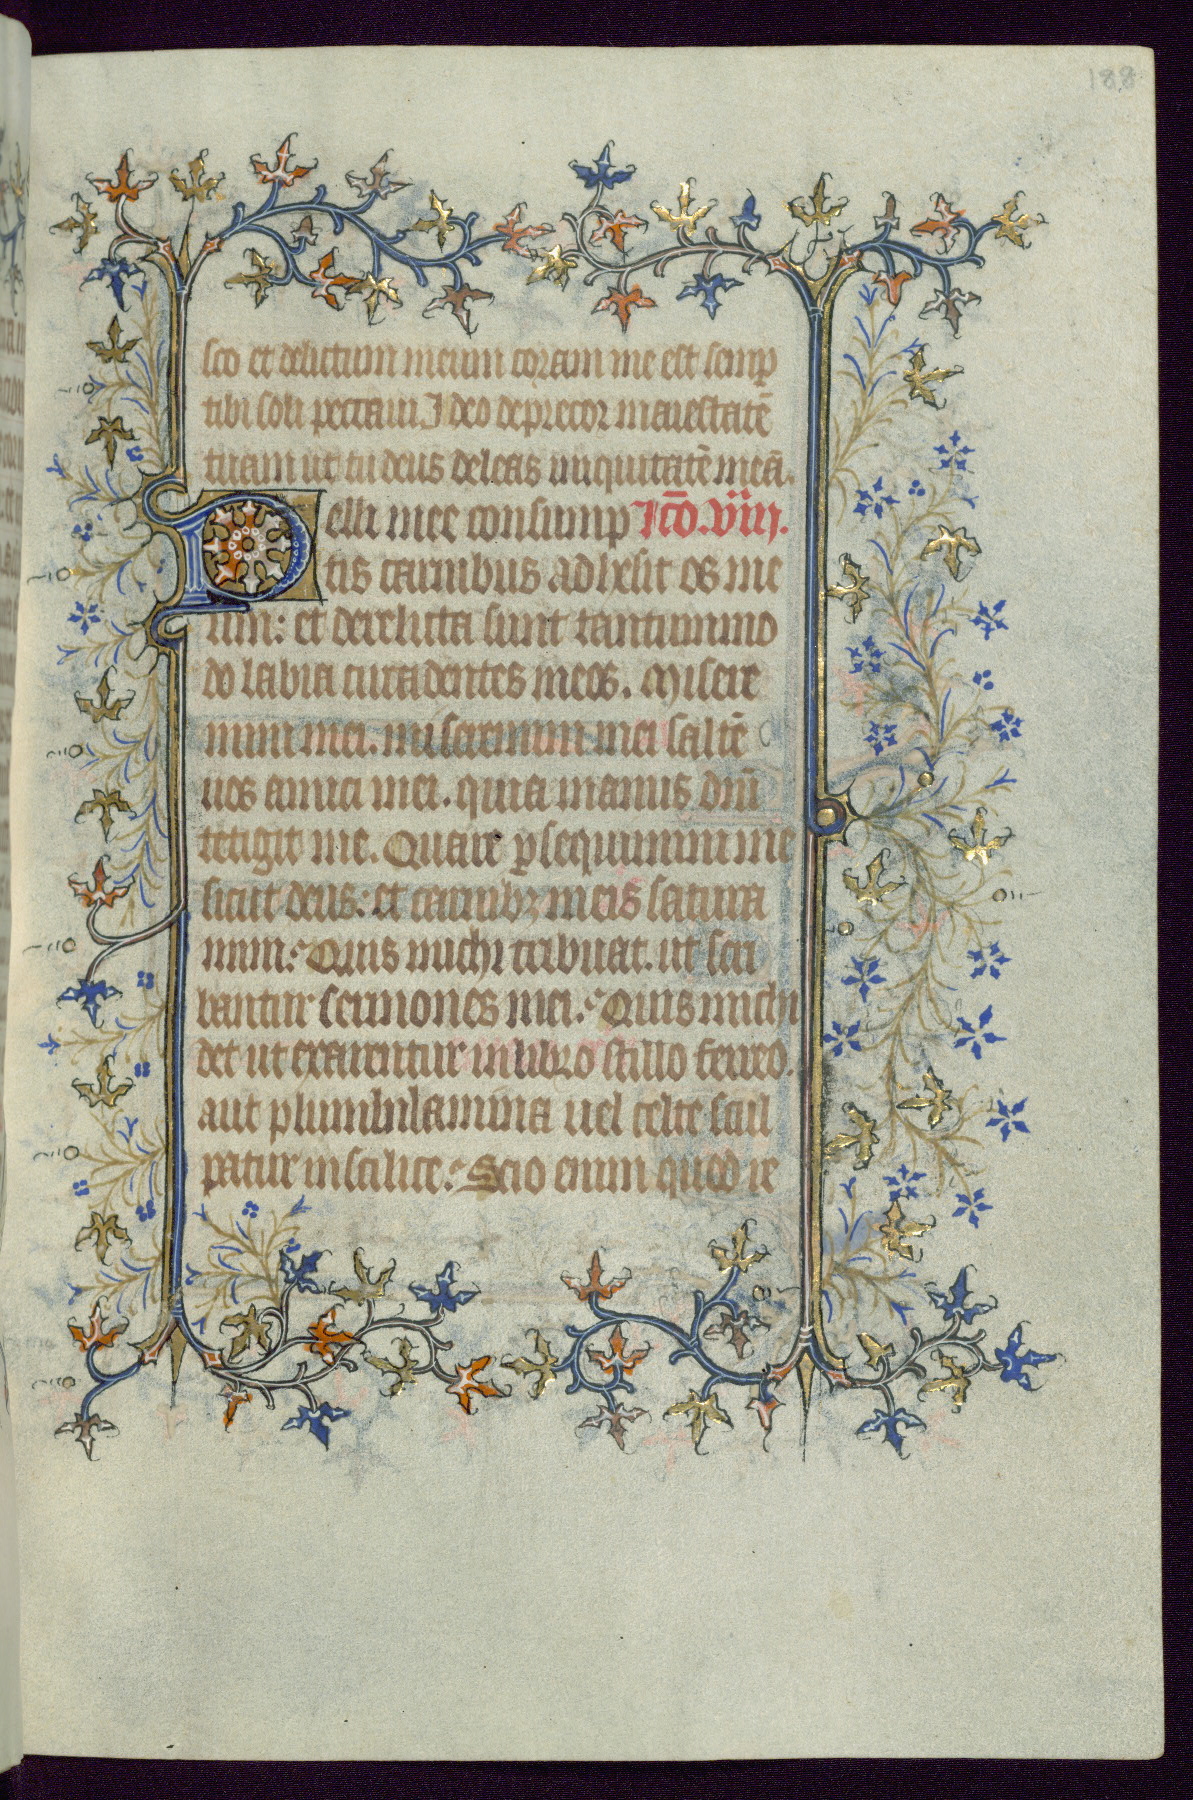 188
sco et delictum meum coram me est semp
tibi soli peccaui Ideo deprecor maiestatē
tuam ut tu deus deleas iniquitatē meā.
Pelli mee consump Icō. viii.
tis carnibus adhesit os me
um: et derelicta sunt tantummo
do labia circa dentes meos. Misere
mini mei. miseremini mei saltē
uos amici mei. quia manus dnī
tetigit me. Quare p̱sequimini me
sicut deus: et carnibꝫ meis satura
mini: Quis michi tribuat. ut scri
bantur sermones mei: Quis michi
det ut exarentur in libro stillo ferreo.
aut plumbi lamina uel celte scul
patur in scilice: Scio enim quod re